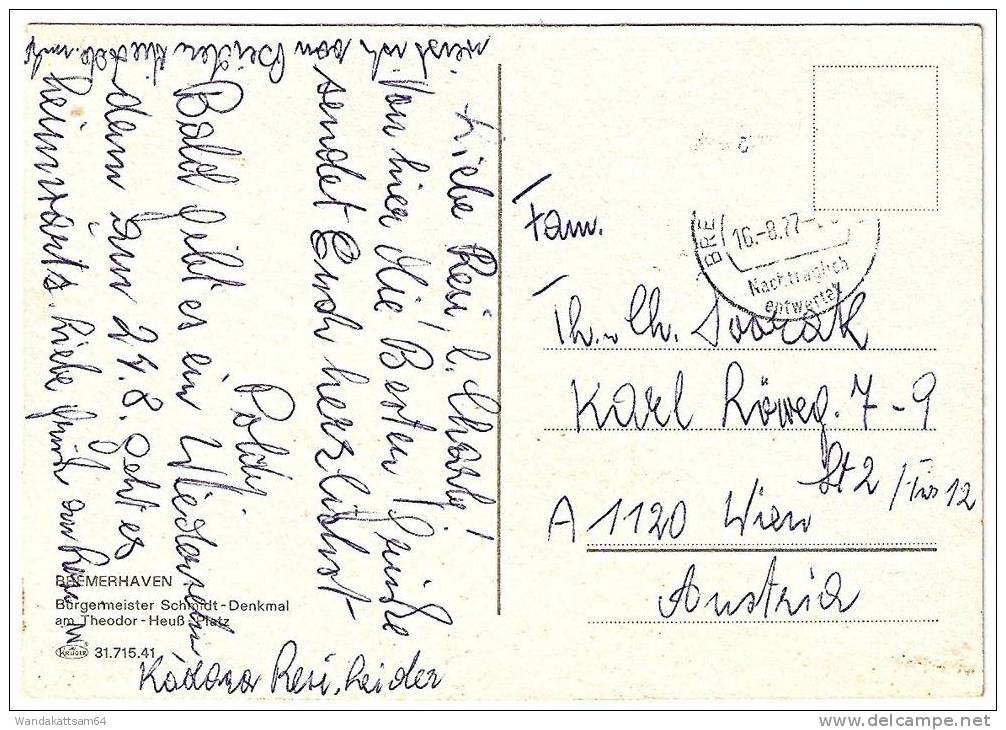 Liebe Resi, l. Charly!
Von hier die Besten Grüße
sendet Euch herzlichst
Poldy
Bald gibt es ein Wiedersehn
denn am 27.8. geht es
heimwärts. Liebe
von Beiden
Resi, leider
BREMERHAVEN
Bürgermeister Schmidt-Denkmal
am Theodor-Heuß-Platz
KRÜGER 31.715.41
BRE
16.-8.77-
Nachträglich
entwertet
Fam.
Th. u. Ch. Dvorak
Karl Löweg. 7-9
St 2 / Tür 12
A 1120 Wien
Austria
Wandakattsam64
delcampe.net